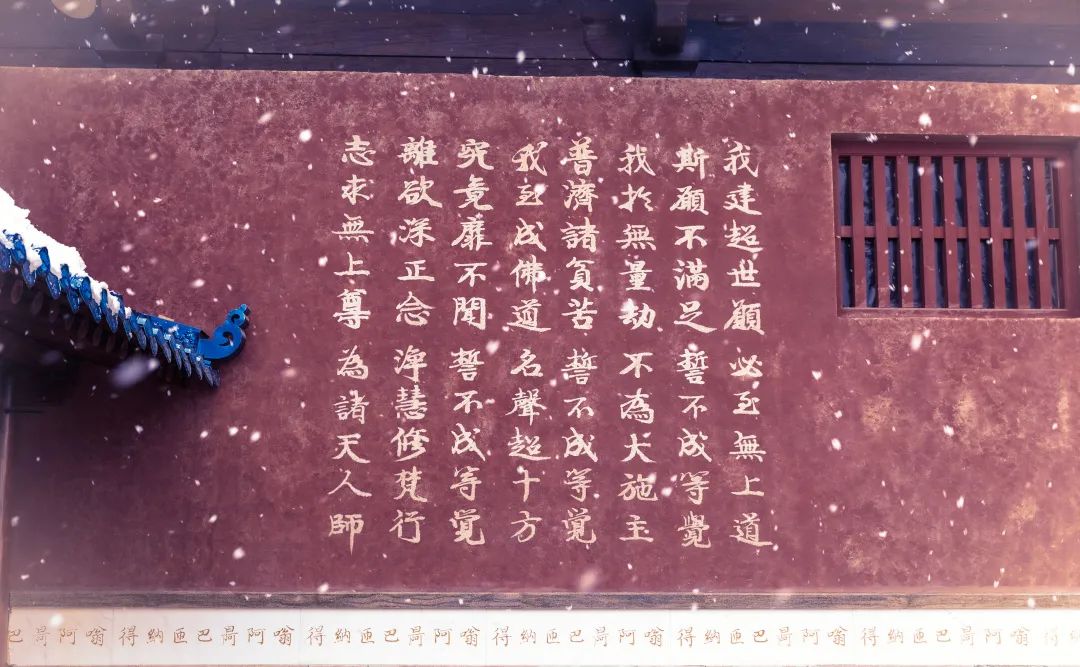 我建超世願 必至無上道
斯願不滿足 誓不成等覺
我於無量劫 不為大施主
普濟諸貧苦 誓不成等覚
我至成佛道 名聲超十方
究竟靡不聞 誓不成等覚
離欲深正念 淨慧修梵行
志求無上尊 為諸天人師
納得 嗡阿曷巴匝納得 嗡阿曷巴匝納得 嗡阿曷巴匝納得 嗡阿曷巴匝納得 嗡阿曷巴匝納得 嗡阿曷巴